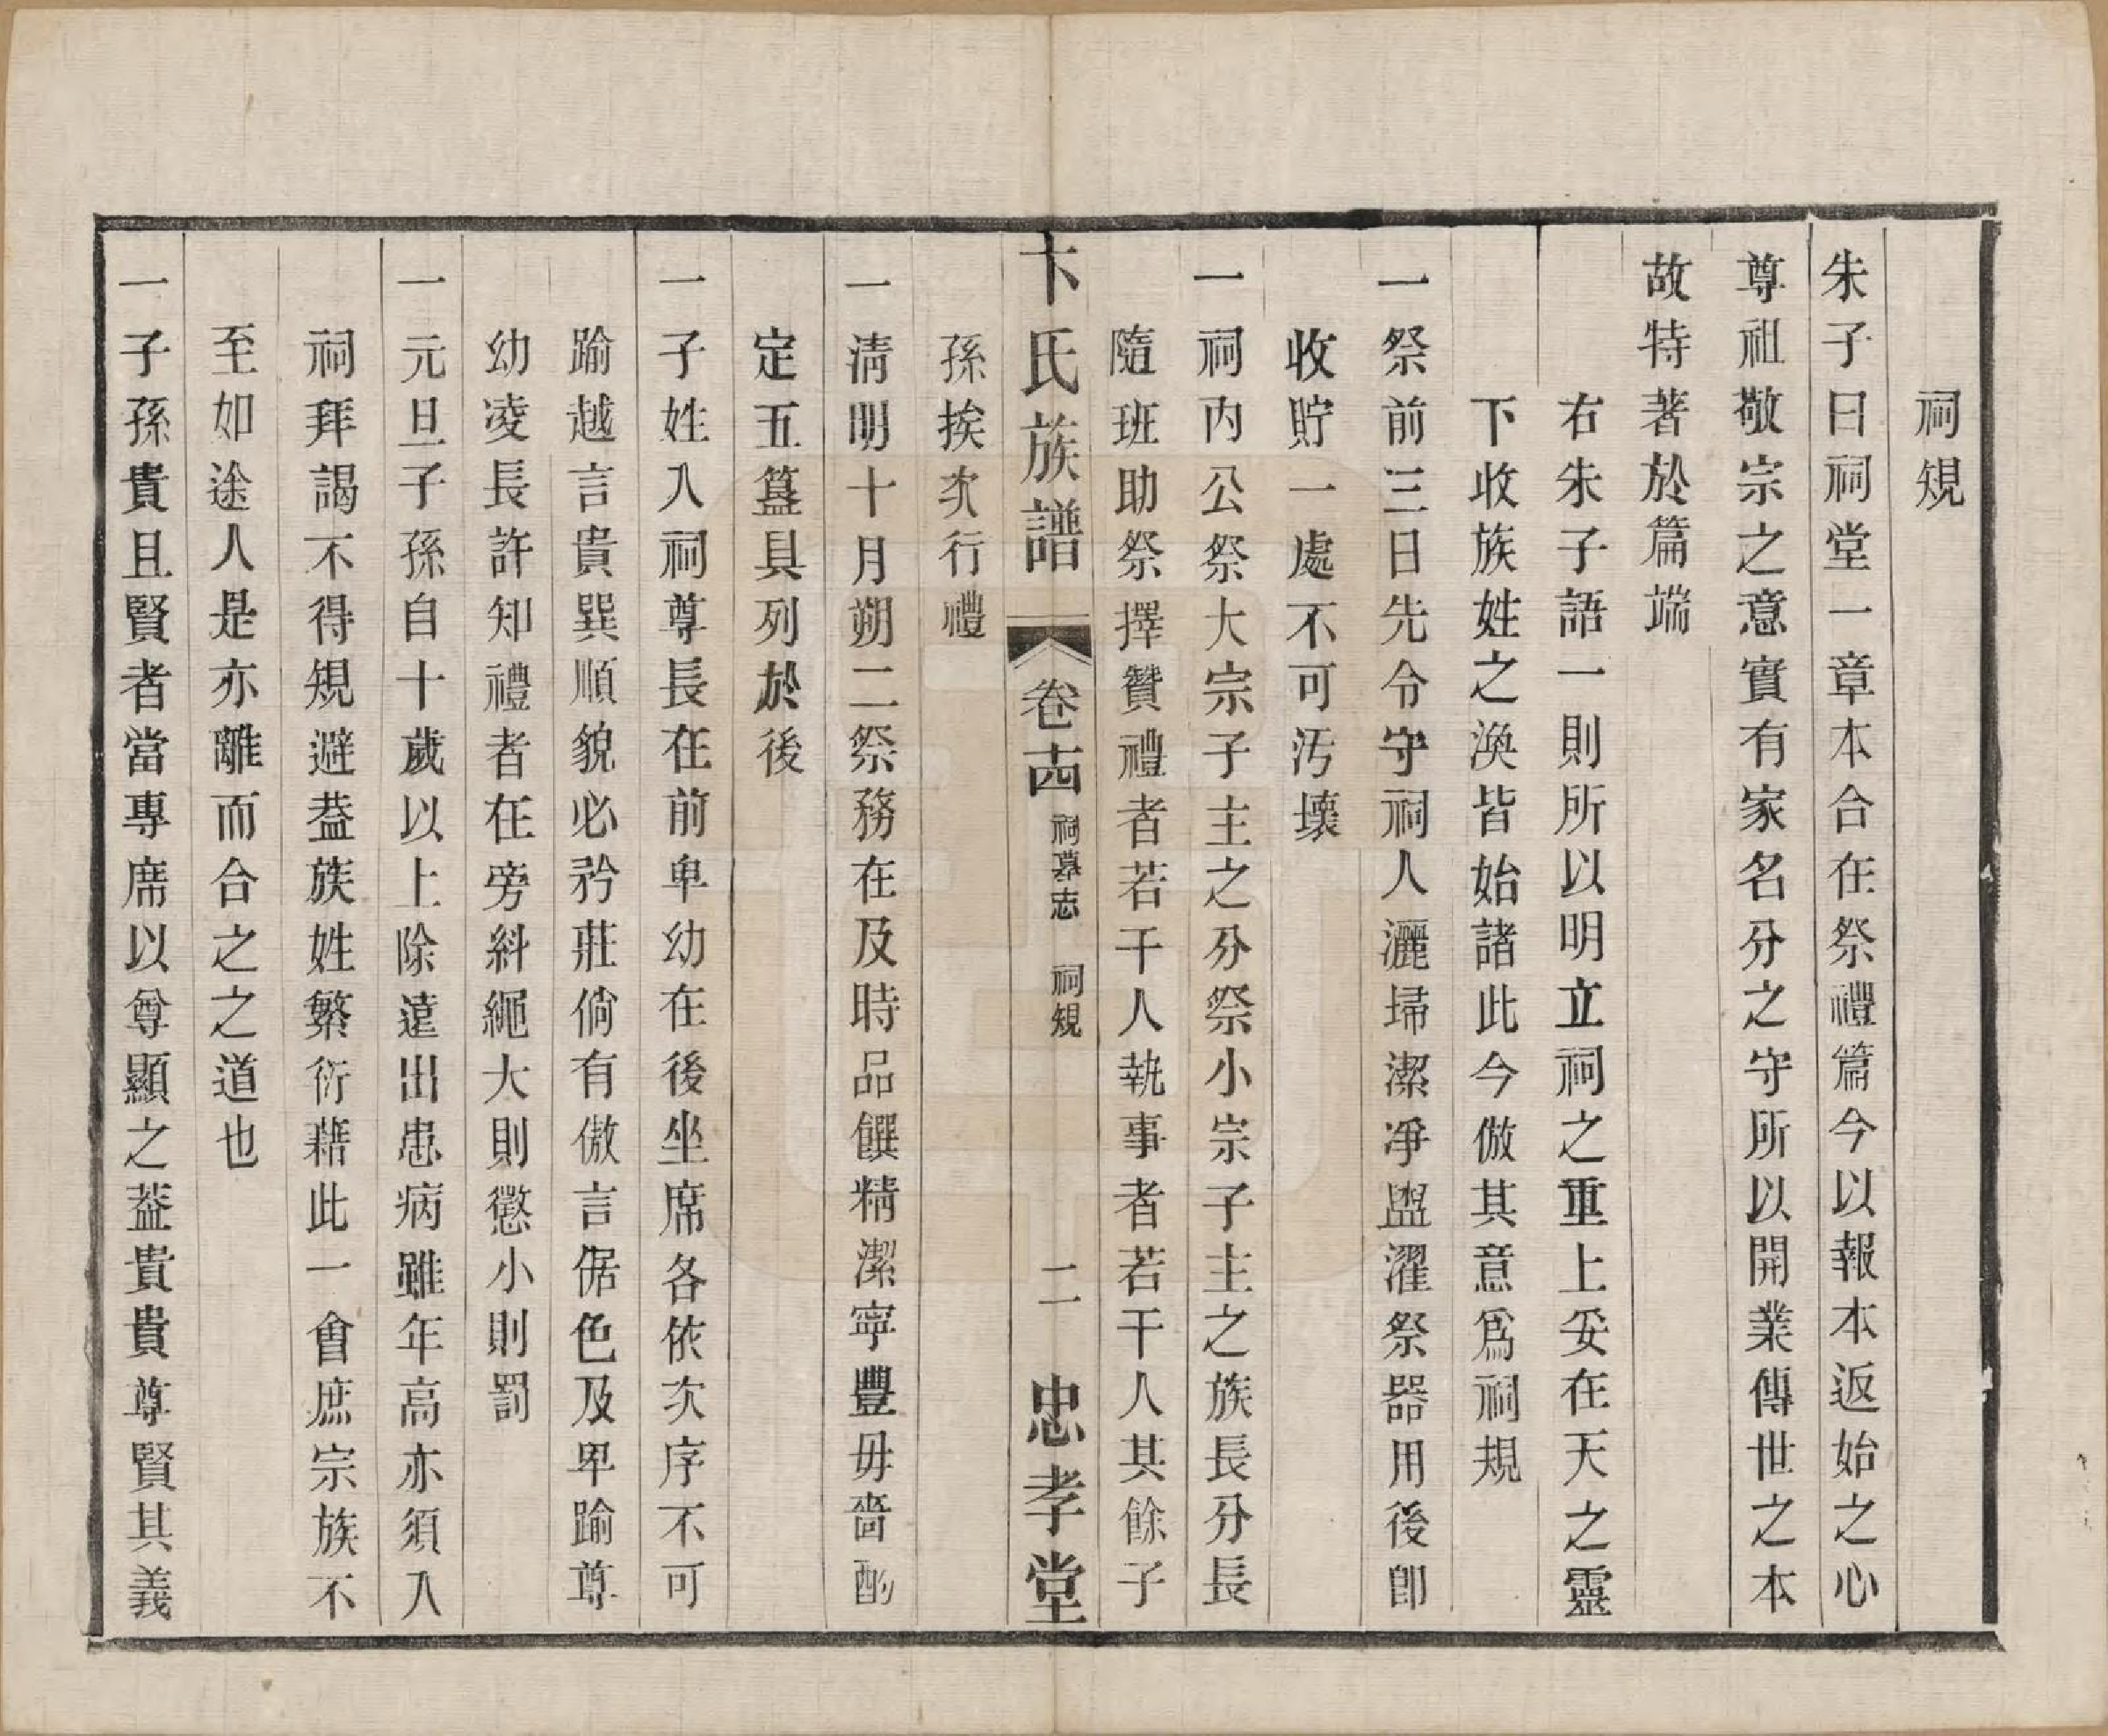 祠規
朱子曰祠堂一章本合在祭禮篇今以報本返始之心
尊祖敬宗之意實有家名分之守所以開業傳世之本
故特著於篇端
右朱子語一則所以明立祠之重上妥在天之靈
下收族姓之渙皆始諸此今倣其意爲祠規
一祭前三日先令守祠人灑埽潔凈盥濯祭器用後卽
收貯一處不可汚壞
一祠内公祭大宗子主之分祭小宗子主之族長分長
隨班助祭擇贊禮者若干人執事者若干人其餘子
孫挨次行禮
卞氏族譜 卷十四 祠墓志 祠規 二 忠孝堂
一清明十月朔二祭務在及時品饌精潔寜豐毋嗇酌
定五簋具列於後
一子姓入祠尊長在前卑幼在後坐席各依次序不可
踰越言貴巽順貌必矜莊倘有傲言倨色及卑踰尊
幼凌長許知禮者在旁糾繩大則懲小則罰
一元旦子孫自十歲以上除遠出患病雖年高亦須入
祠拜謁不得規避葢族姓繁衍藉此一會庶宗族不
至如途人是亦離而合之之道也
一子孫貴且賢者當專席以尊顯之葢貴貴尊賢其義